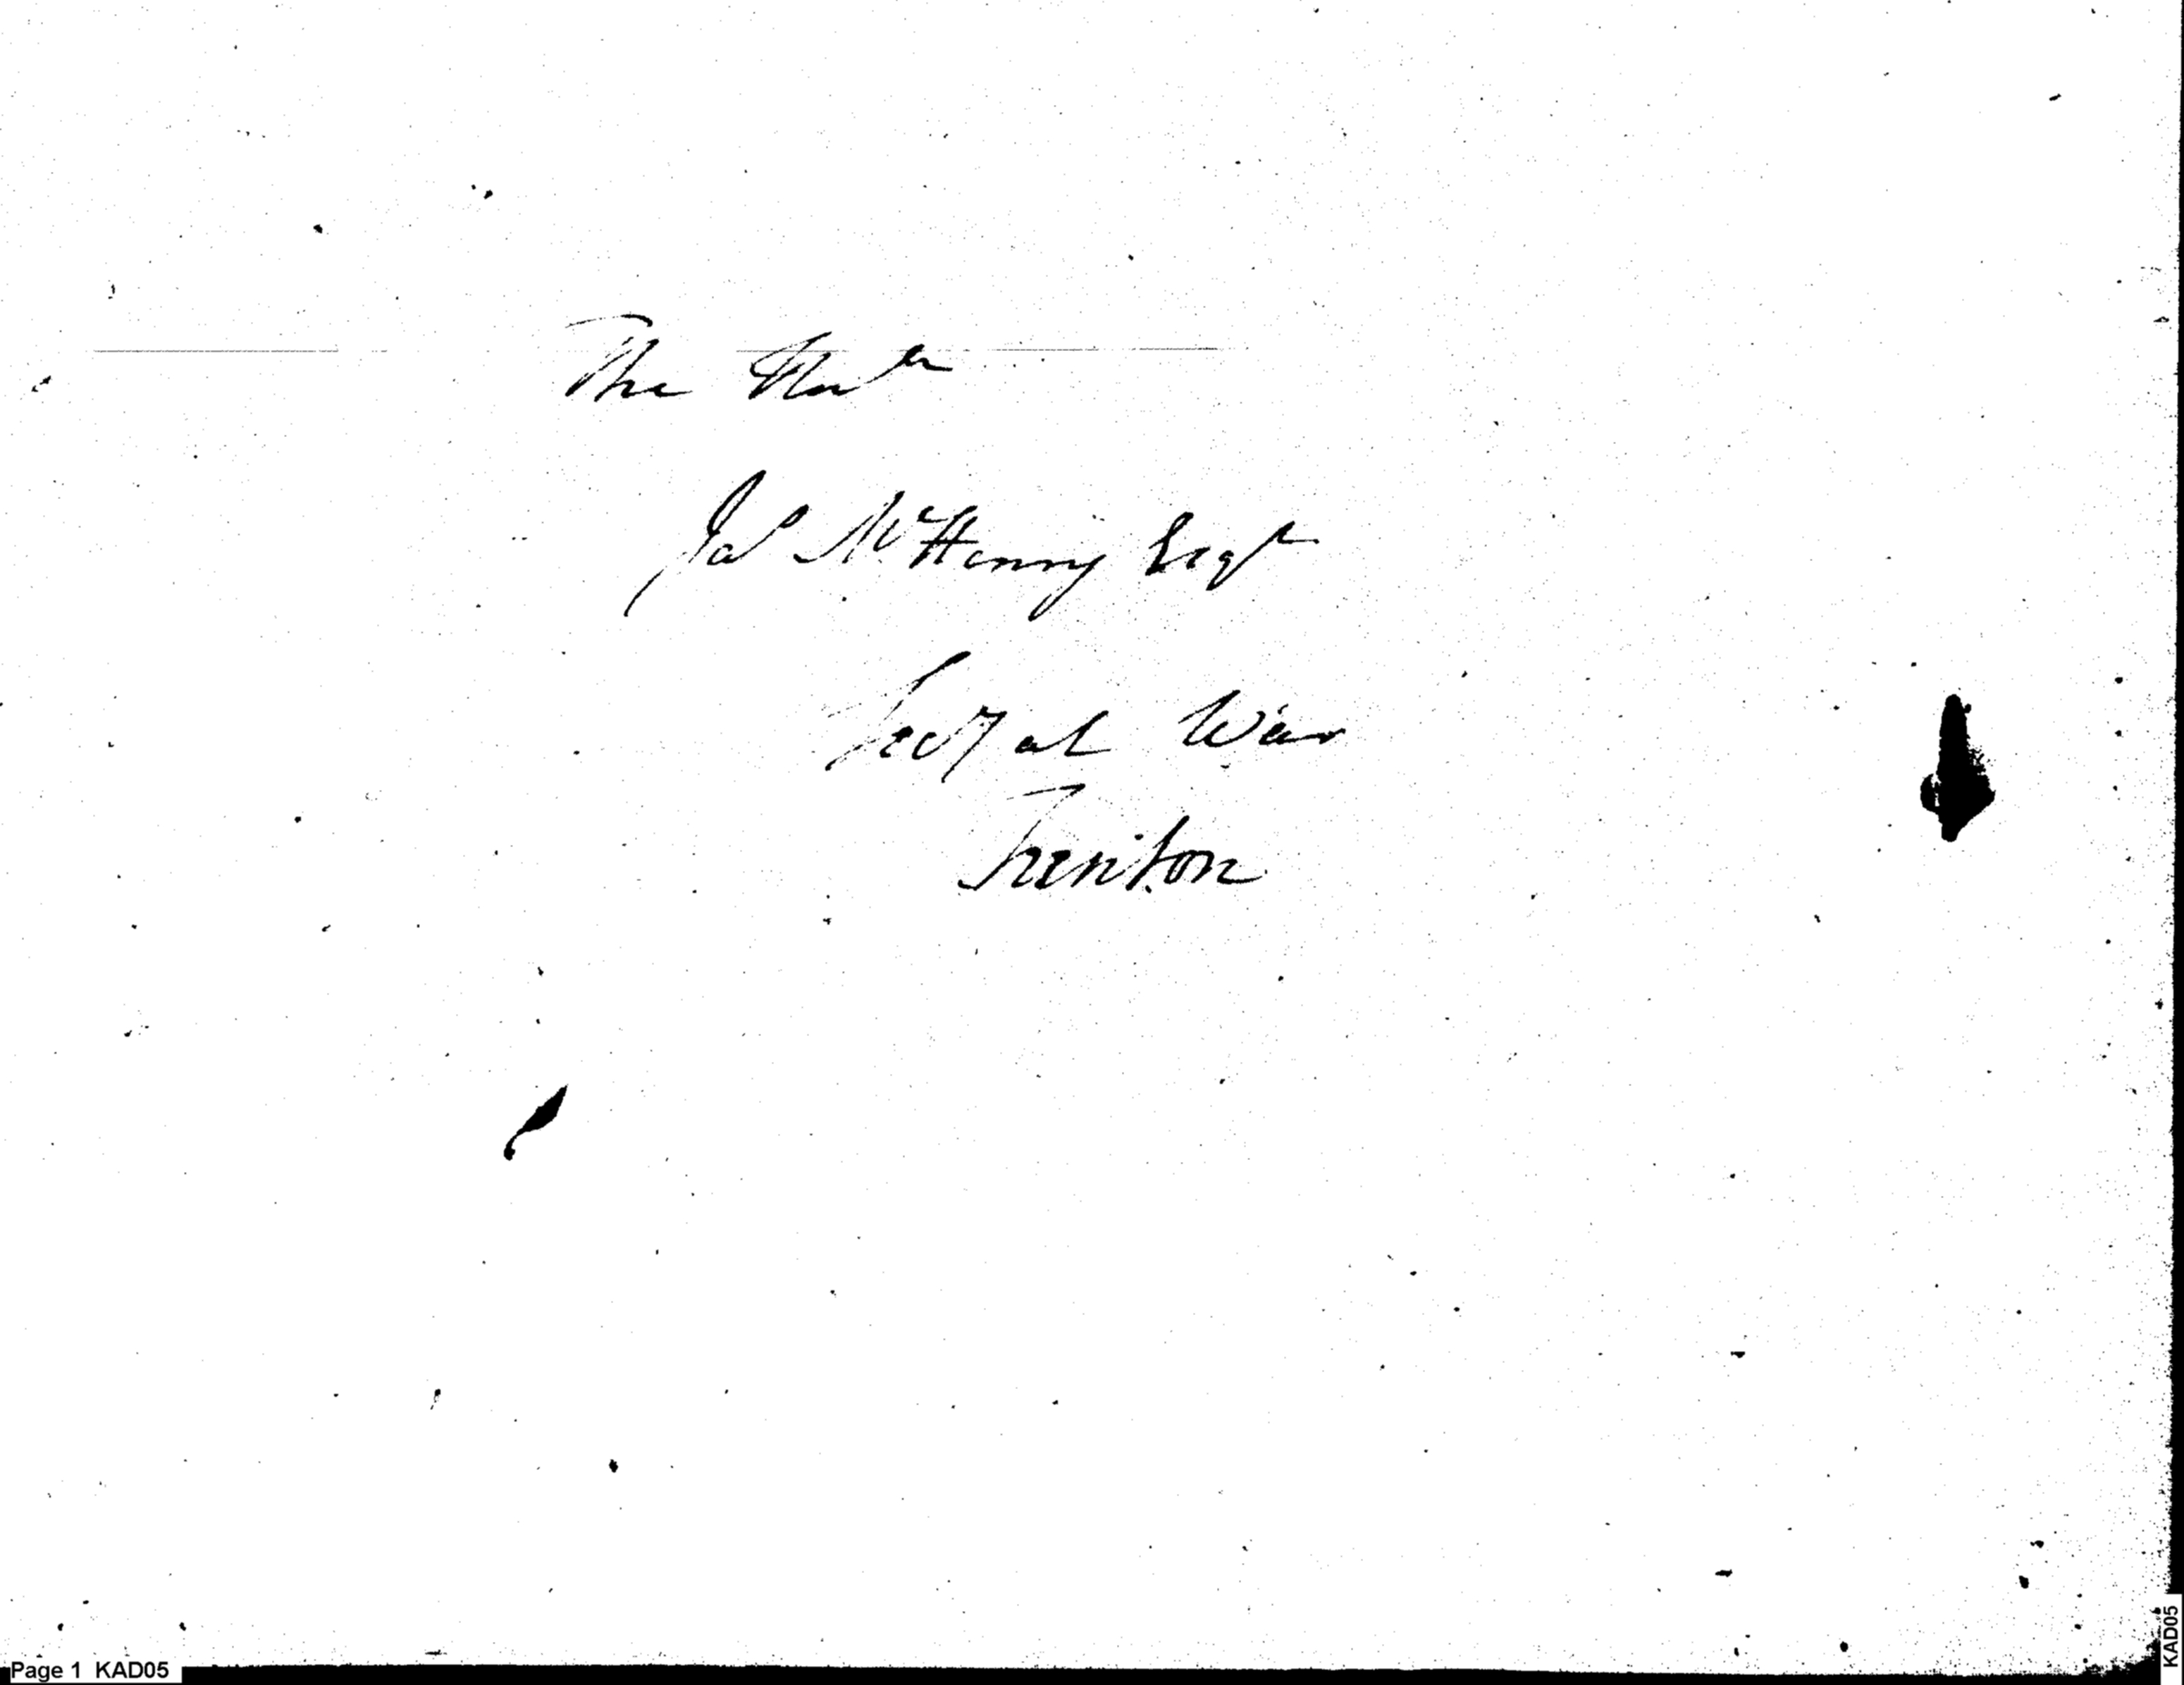 The Honble
Jas McHenry Esqr
Secy at War
Trenton
Page 1 KAD05
KAD05